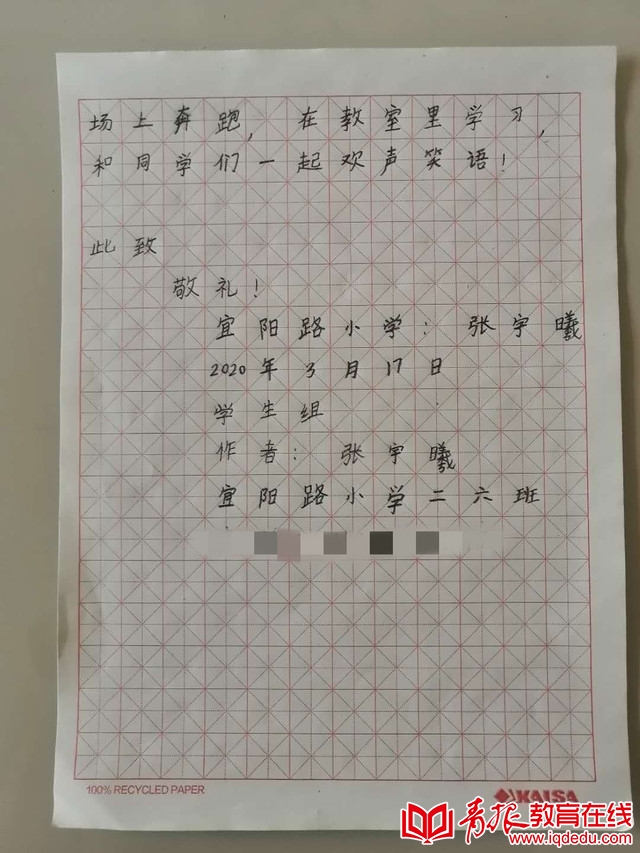 场上奔跑，在教室里学习，
和同学们一起欢声笑语！
此致
敬礼！
宜阳路小学：张宇曦
2020年3月17日
学生组
作者：张宇曦
宜阳路小学二六班
100% RECYCLED PAPER
KAISA
青报教育在线
www.iqdedu.com